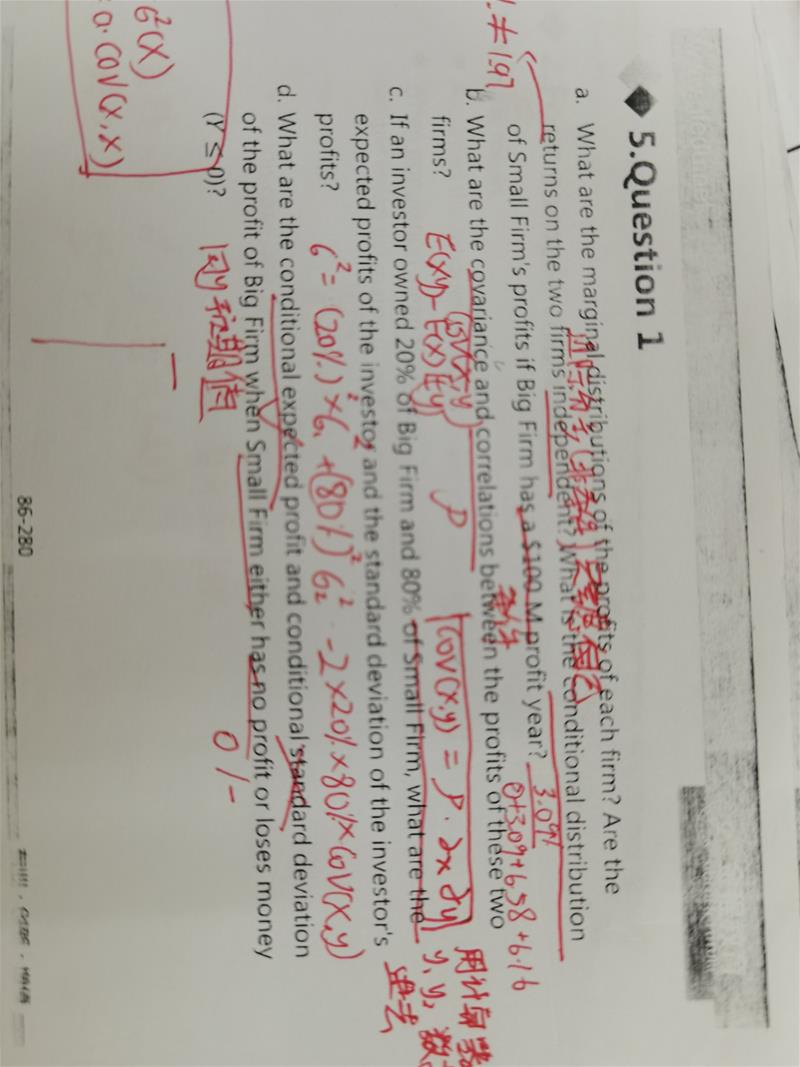 5.Question 1
a. What are the marginal distributions of the profits of each firm? Are the
returns on the two firms independent? What is the conditional distribution
of Small Firm's profits if Big Firm has a $100 M profit year?
3.09%
0+3.09+6.58+6.16
≠1.97
b. What are the covariance and correlations between the profits of these two
firms?
cov(x,y)
E(xy)-E(x)E(y)
ρ
cov(x,y) = ρ·∂x∂y
用计算器
c. If an investor owned 20% of Big Firm and 80% of Small Firm, what are the
expected profits of the investor and the standard deviation of the investor's
profits?
6²= (20%)²×6₁²+(80%)²6₂²-2×20%×80%×cov(x,y)
d. What are the conditional expected profit and conditional standard deviation
of the profit of Big Firm when Small Firm either has no profit or loses money
(Y ≤ 0)?
0/-
6²(x)
a·cov(x,x)
86-280